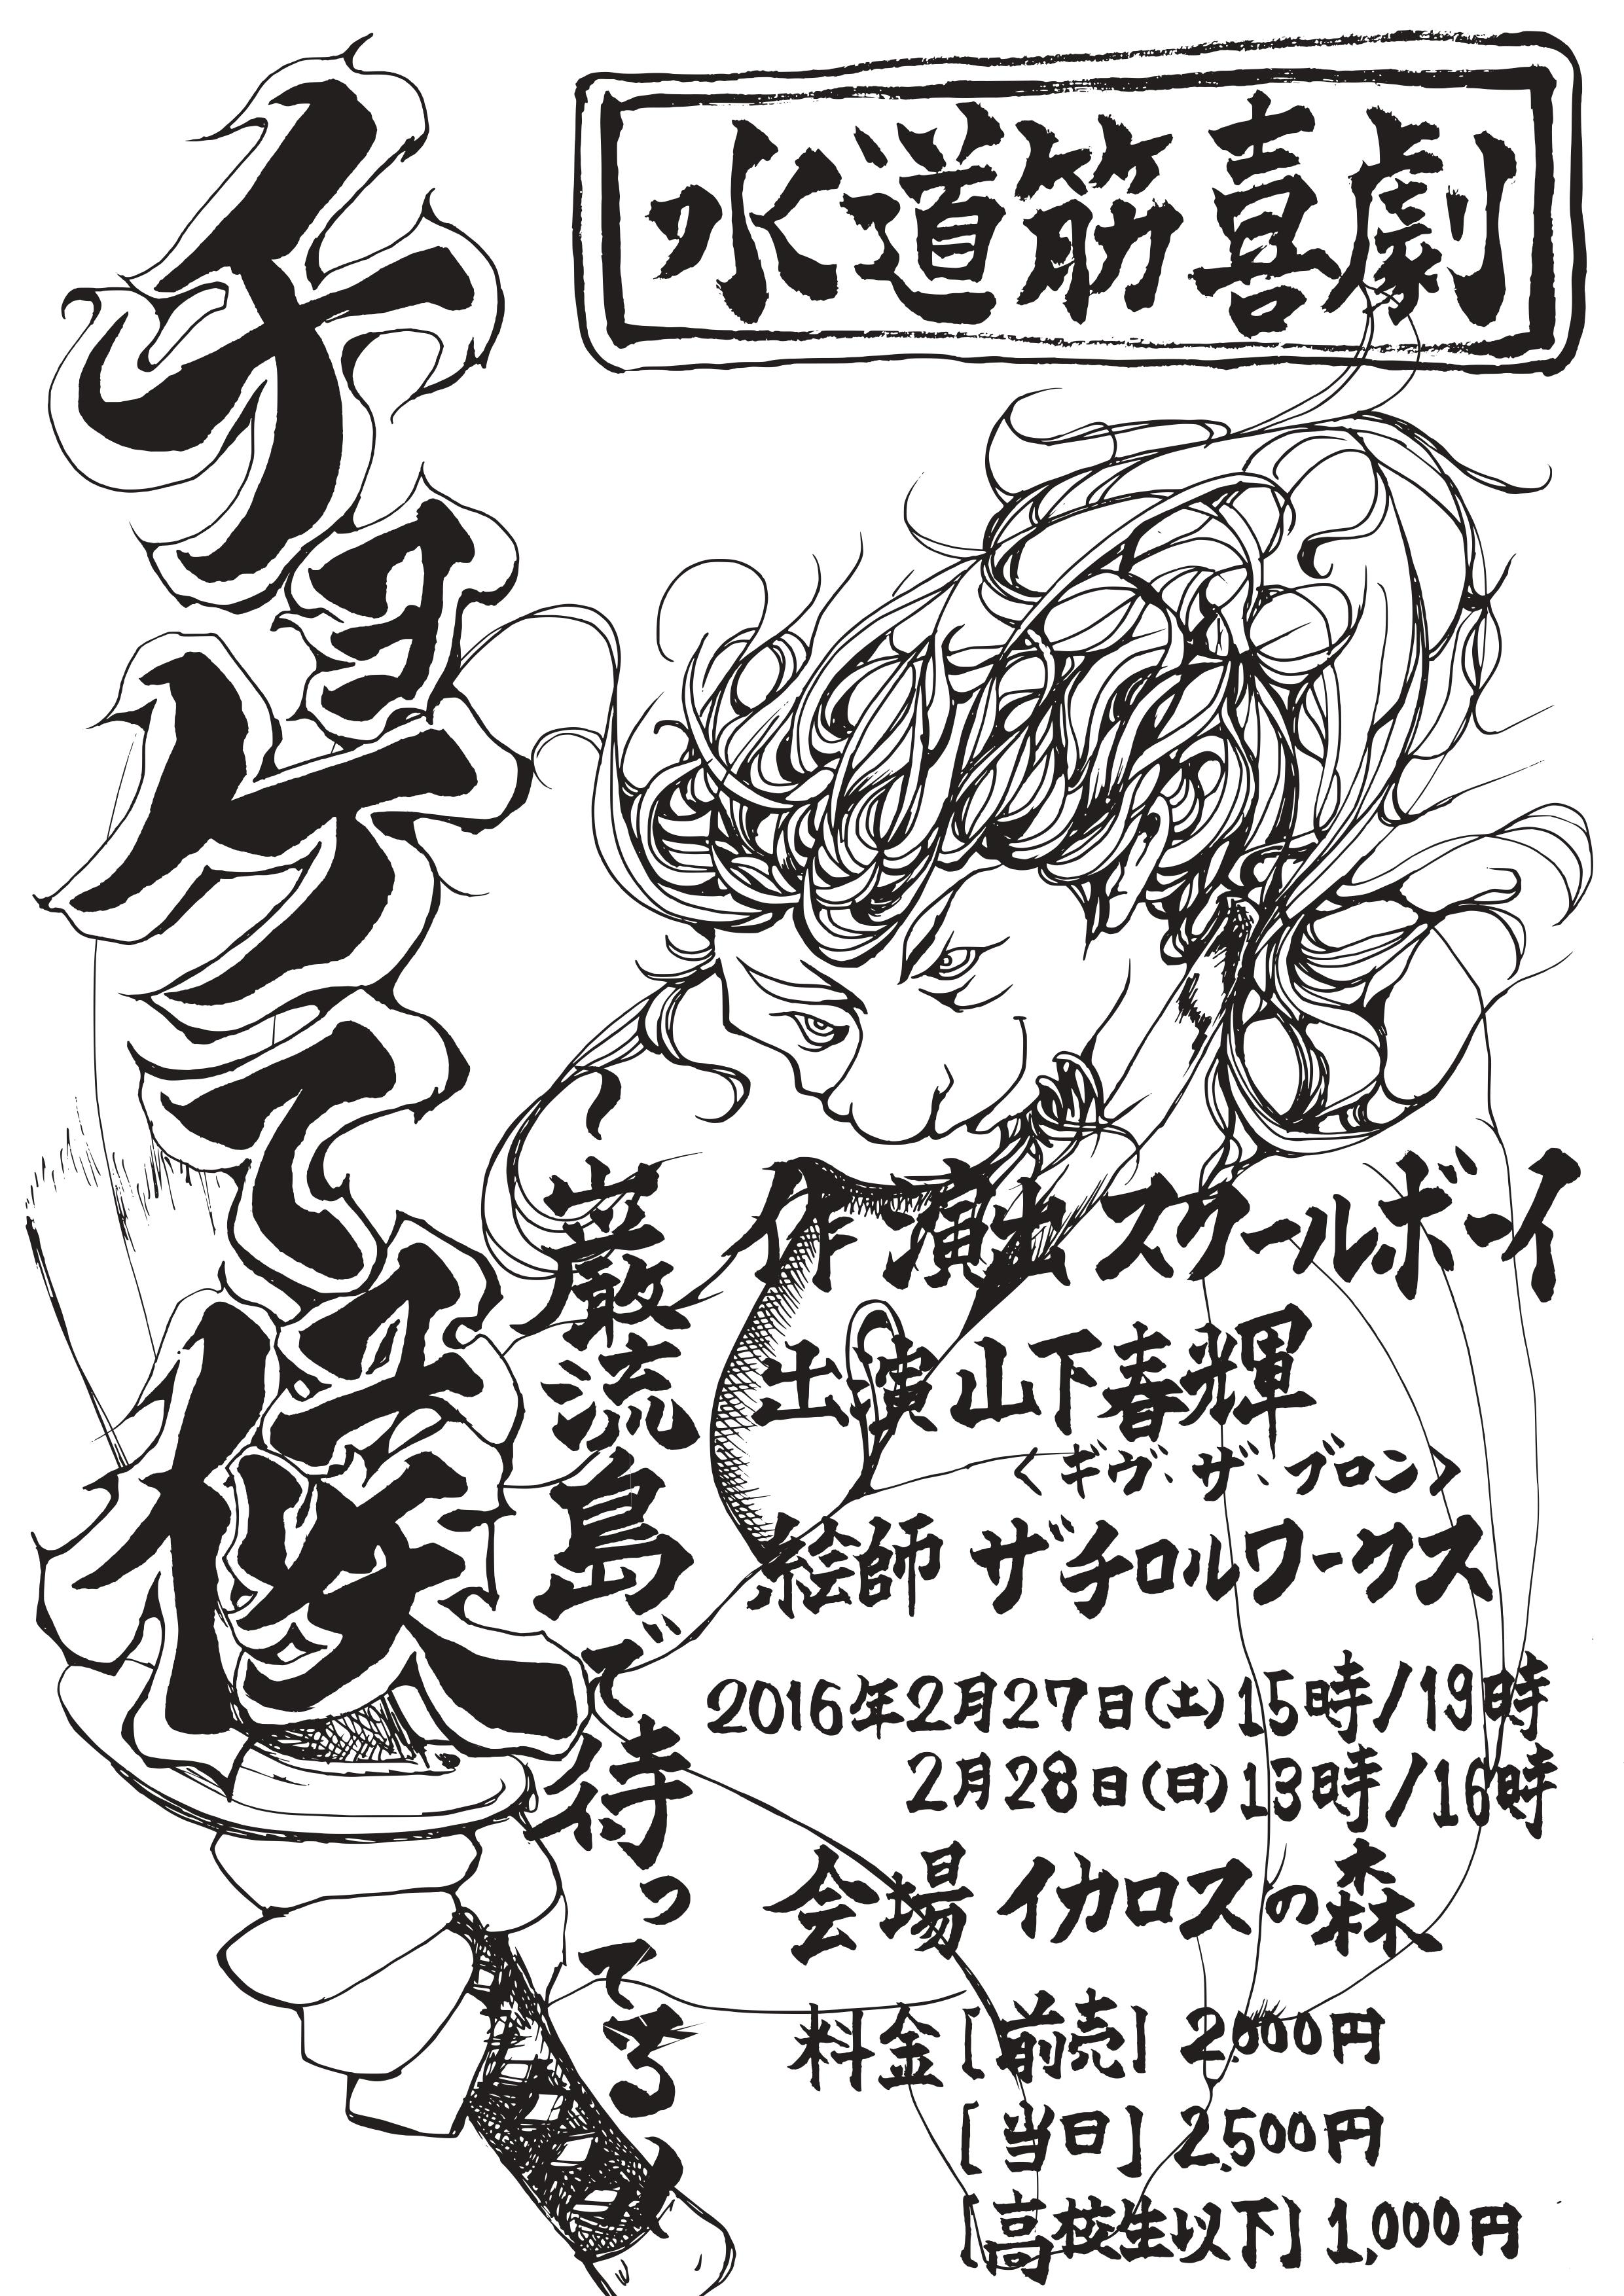 水道筋喜劇
チョケて候
〜巌流島で待ってる〜
作 演出 スクールボーイ
出演 山下春輝
〈ギヴ、ザ、ブロン〉
絵師 ザチロルワークス
2016年2月27日(土)15時/19時
2月28日(日)13時/16時
会場 イカロスの森
料金[前売] 2,000円
[当日] 2,500円
[高校生以下] 1,000円